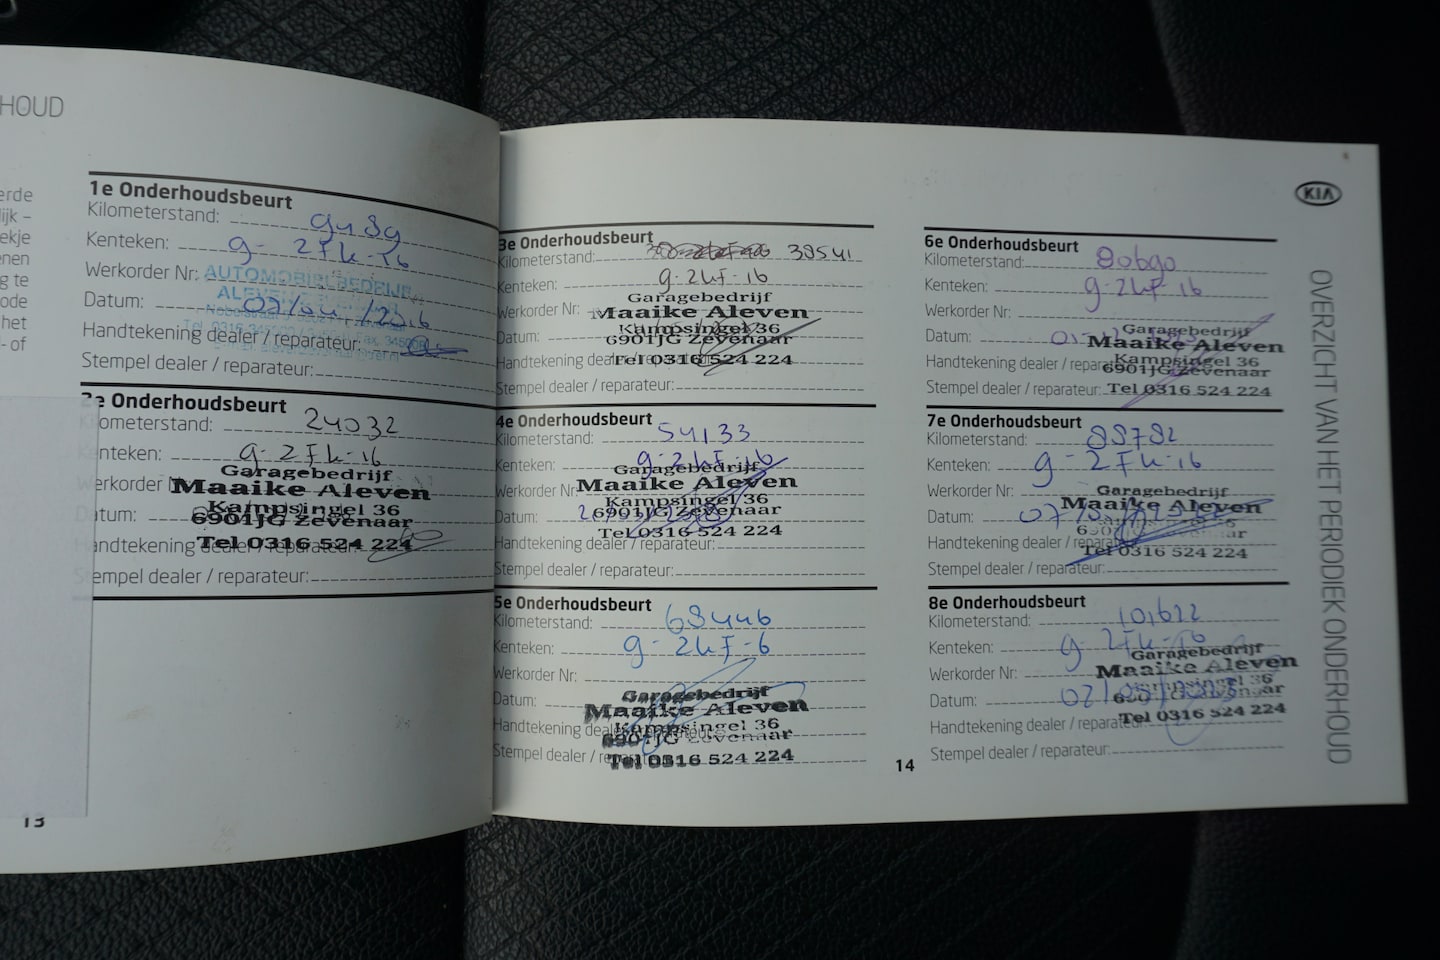 HOUD
erde
lijk –
ekje
enen
g te
ode
het
- of
13
1e Onderhoudsbeurt
Kilometerstand: 9489
Kenteken: 9-ZFK-16
Werkorder Nr: AUTOMOBIELBEDRIJF
ALEVEN
Datum:
Handtekening dealer / reparateur:
Stempel dealer / reparateur:
2e Onderhoudsbeurt
Kilometerstand: 24032
Kenteken: 9-ZFK-16
Garagebedrijf
Werkorder
Maaike Aleven
Kampsingel 36
Datum:
6901JG Zevenaar
Handtekening dealer / reparateur:
Tel 0316 524 224
Stempel dealer / reparateur:
3e Onderhoudsbeurt
Kilometerstand: 38541
Kenteken: 9-ZKF-16
Garagebedrijf
Werkorder Nr:
Maaike Aleven
Kampsingel 36
Datum:
6901JG Zevenaar
Handtekening dealer / reparateur:
Tel 0316 524 224
Stempel dealer / reparateur:
4e Onderhoudsbeurt
Kilometerstand: 54133
Kenteken: 9-ZKF-16
Garagebedrijf
Werkorder Nr:
Maaike Aleven
Kampsingel 36
Datum:
6901JG Zevenaar
Tel 0316 524 224
Handtekening dealer / reparateur:
Stempel dealer / reparateur:
5e Onderhoudsbeurt
Kilometerstand: 68446
Kenteken: 9-ZKF-6
Werkorder Nr:
Garagebedrijf
Datum:
Maaike Aleven
Handtekening
Kampsingel 36
6901JG Zevenaar
Stempel dealer /
Tel 0316 524 224
14
KIA
6e Onderhoudsbeurt
Kilometerstand: 80690
Kenteken: 9-ZKF-16
Werkorder Nr:
Garagebedrijf
Datum:
Maaike Aleven
Handtekening dealer /
Kampsingel 36
6901JG Zevenaar
Stempel dealer / reparateur:
Tel 0316 524 224
7e Onderhoudsbeurt
Kilometerstand: 88782
Kenteken: 9-ZFK-16
Werkorder Nr:
Garagebedrijf
Maaike Aleven
Datum:
Handtekening dealer /
Tel 0316 524 224
Stempel dealer / reparateur:
8e Onderhoudsbeurt
Kilometerstand: 101622
Kenteken: 9-ZFK-16
Garagebedrijf
Werkorder Nr:
Maaike Aleven
Datum:
Handtekening dealer / reparateur:
Tel 0316 524 224
Stempel dealer / reparateur:
OVERZICHT VAN HET PERIODIEK ONDERHOUD